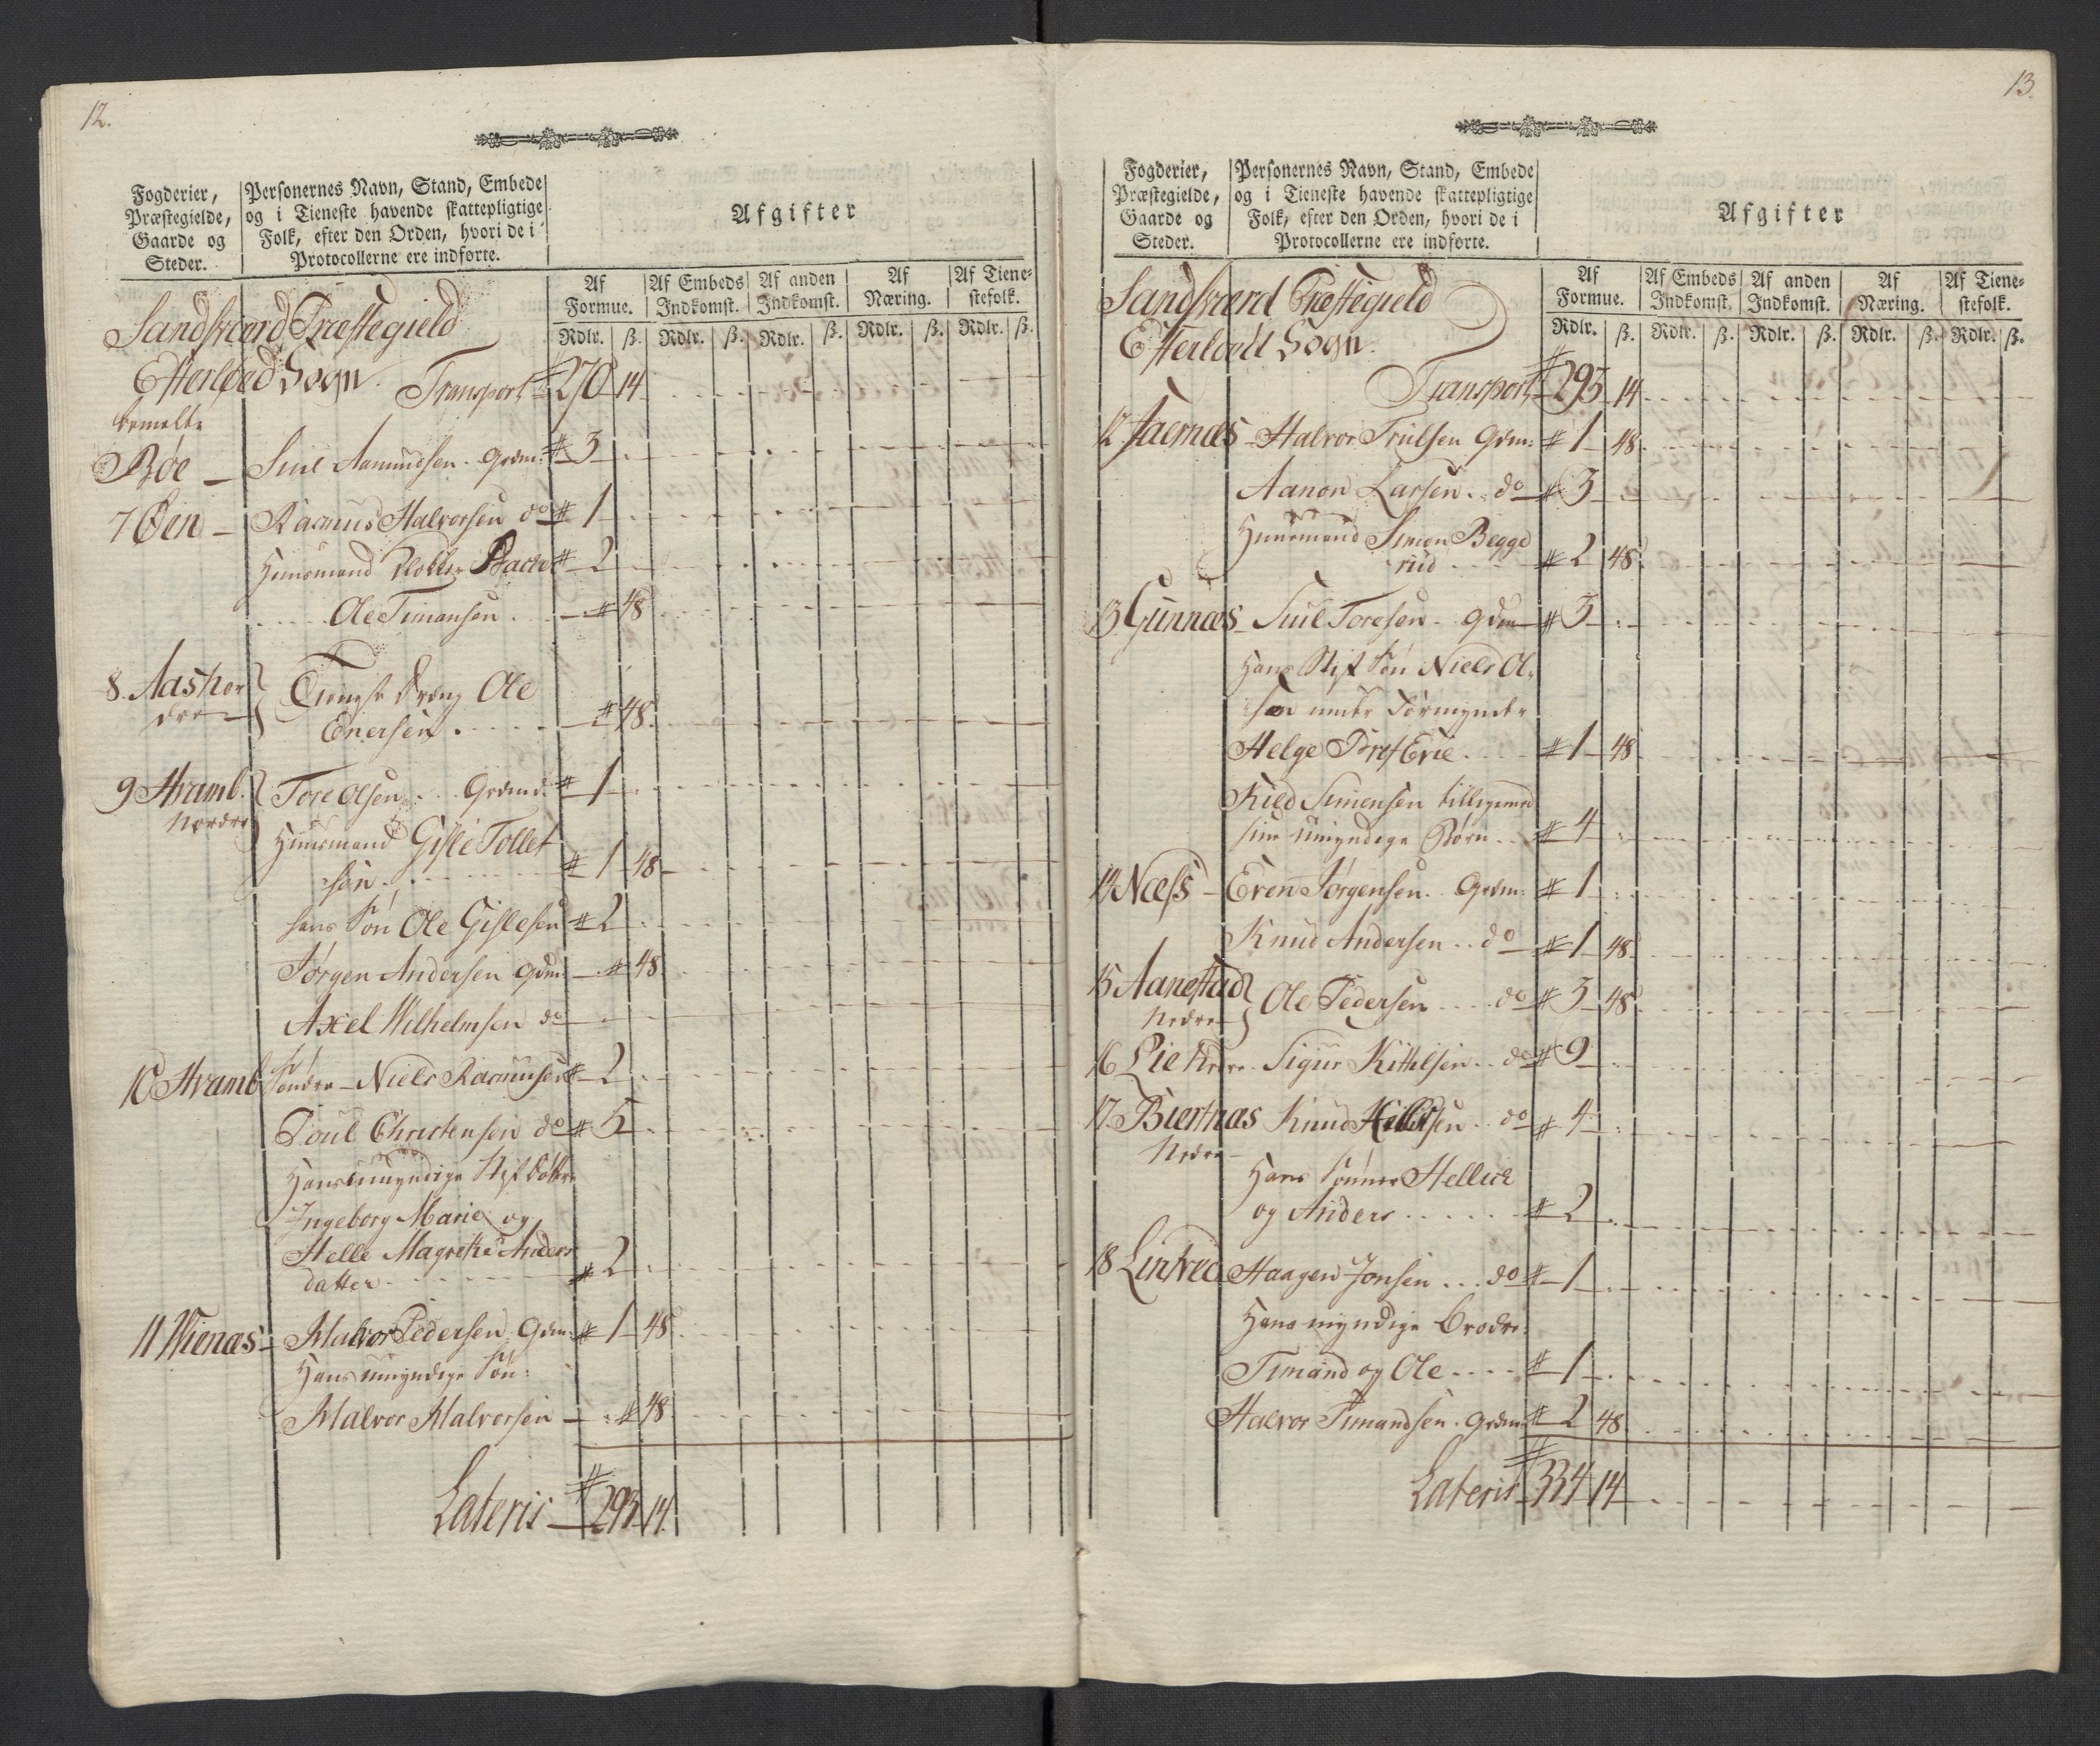 12.
Fogderier, Præstegielde, Gaarde og Steder.
Personernes Navn, Stand, Embede og i Tieneste havende skattepligtige Folk, efter den Orden, hvori de i Protocollerne ere indførte.
Afgifter
Af Formue. Af Embeds Indkomst. Af anden Indkomst. Af Næring. Af Tienestefolk.
Rdlr. ß. Rdlr. ß. Rdlr. ß. Rdlr. ß. Rdlr. ß.
Sandsværd Præstegield
Efterløed Sogn. Transport 270 14
bemelte
Bøe - Siul Aamundsen Grdm: 3
7 Øen - Rasmus Halvorsen do 1
Huusmand 2
Ole Timansen 48
8. Aasker Tieneste Dreng Ole
Enersen 48.
9 Hvamb. Tore Olsen Grdmd. 1
Nordre
Huusmand Gisle Tollef
søn 1 48
hans Søn Ole Gislesen 2
Jørgen Andersen Gdm 48
Axel Wilhelmsen do
10 Hvamb Søndre - Niels Rasmusen 2
Poul Christensen do 5
Hans umyndige Stifdøttre
Ingeborg Marie og
Helle Magrethe Anders
datter 2
11 Wienæs - Halvor Pedersen Gdm: 1 48
Hans umyndige Søn:
Halvor Halvorsen 48
Lateris 293 14.
13.
Fogderier, Præstegielde, Gaarde og Steder.
Personernes Navn, Stand, Embede og i Tieneste havende skattepligtige Folk, efter den Orden, hvori de i Protocollerne ere indførte.
Afgifter
Af Formue. Af Embeds Indkomst. Af anden Indkomst. Af Næring. Af Tienestefolk.
Rdlr. ß. Rdlr. ß. Rdlr. ß. Rdlr. ß. Rdlr. ß.
Sandsværd Præstegield
Efterløed Sogn.
Transport 293 14
12 Jaernæs - Halvor Trulsen Grdm: 1 48
Aanon Larsen do 3
Huusmand Simon Begge
rud 2 48
13 Gunnæs - Siul Toresen Gdm 3
Hans Stif Søn Niels Ol,
sen under Formynder
Helge 1 48
Kild Simensen tilligemed
sine umyndige Børn 4
14 Næss - Even Jørgensen Grdm: 1
Knud Andersen do 1 48
15 Aanestad Ole Pedersen do 3 48
Nedre
16 Lie Nedre. Sigur Kittilsen do 9
17. Biertnæs Knud do 4
Nedre
Hans Sønner Hellick
og Anders 2
18 Lintved Haagen Jonsen do 1
Hans myndige Brødre:
Timand og Ole 1
Halvor Timandsen Grdm 2 48
Lateris 334 14